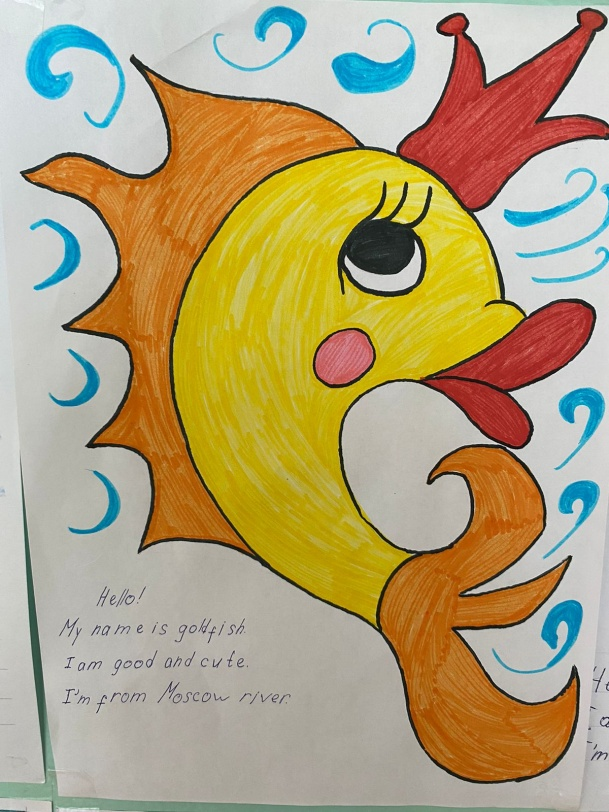 Hello!
My name is goldfish.
I am good and cute.
I'm from Moscow river.